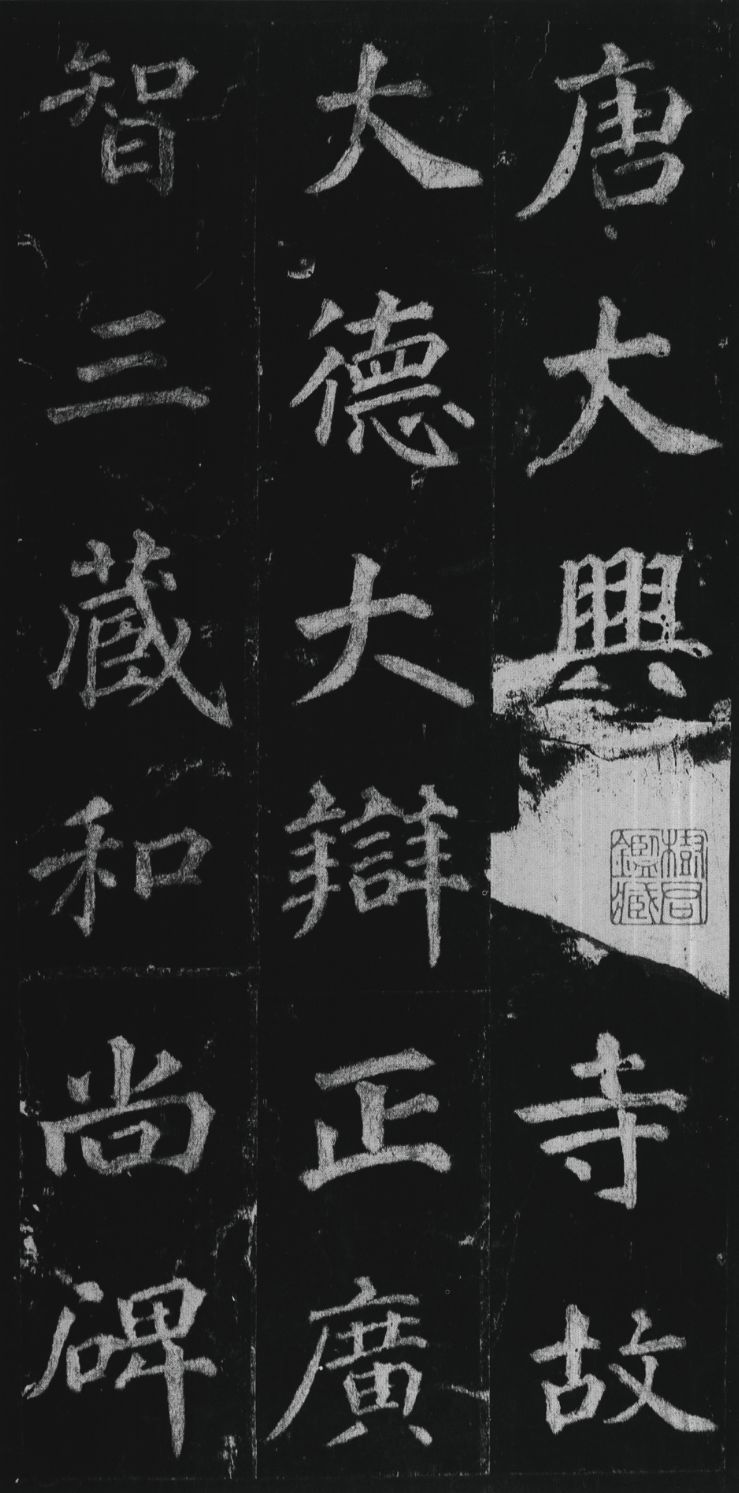 唐大興寺故
大德大辯正廣
智三藏和尚碑
樹君鑑藏